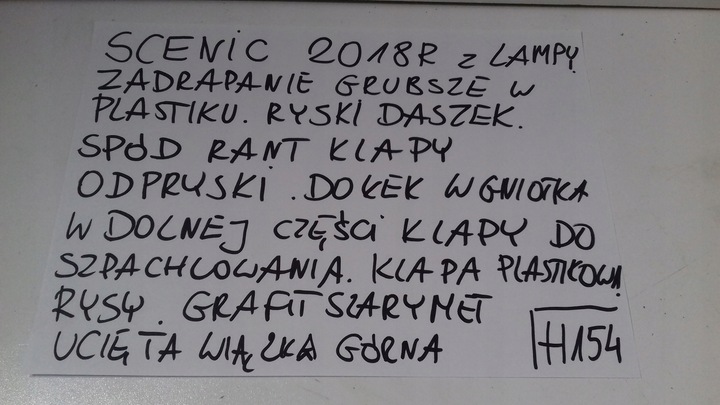 SCENIC 2018R 2 LAMPY
ZADRAPANIE GRUBSZE W
PLASTIKU. RYSKI DASZEK.
SPÓD RANT KLAPY
ODPRYSKI. DOŁEK WGNIOTKA
W DOLNEJ CZĘŚCI KLAPY DO
SZPACHLOWANIA. KLAPA PLASTIKOWA
RYSY. GRAFIT SZARY MET
UCIĘTA WIĄZKA GÓRNA
H154